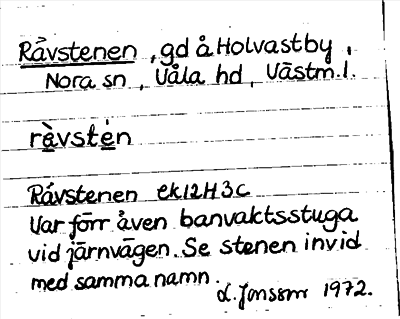 Råvstenen, gd å Holvastby,
Nora sn, Våla hd, Västm.l.
rävstén
Rävstenen ek12H3c
Var förr även banvaktsstuga
vid järnvägen. Se stenen invid
med samma namn.
L. Jonsson 1972.